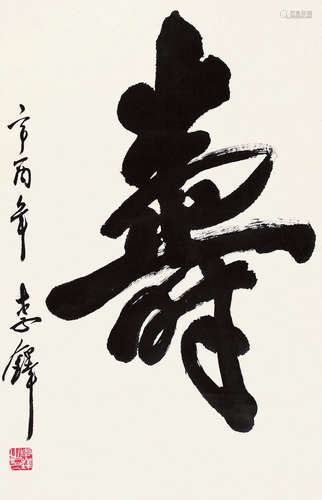 壽
辛酉年 李鐸